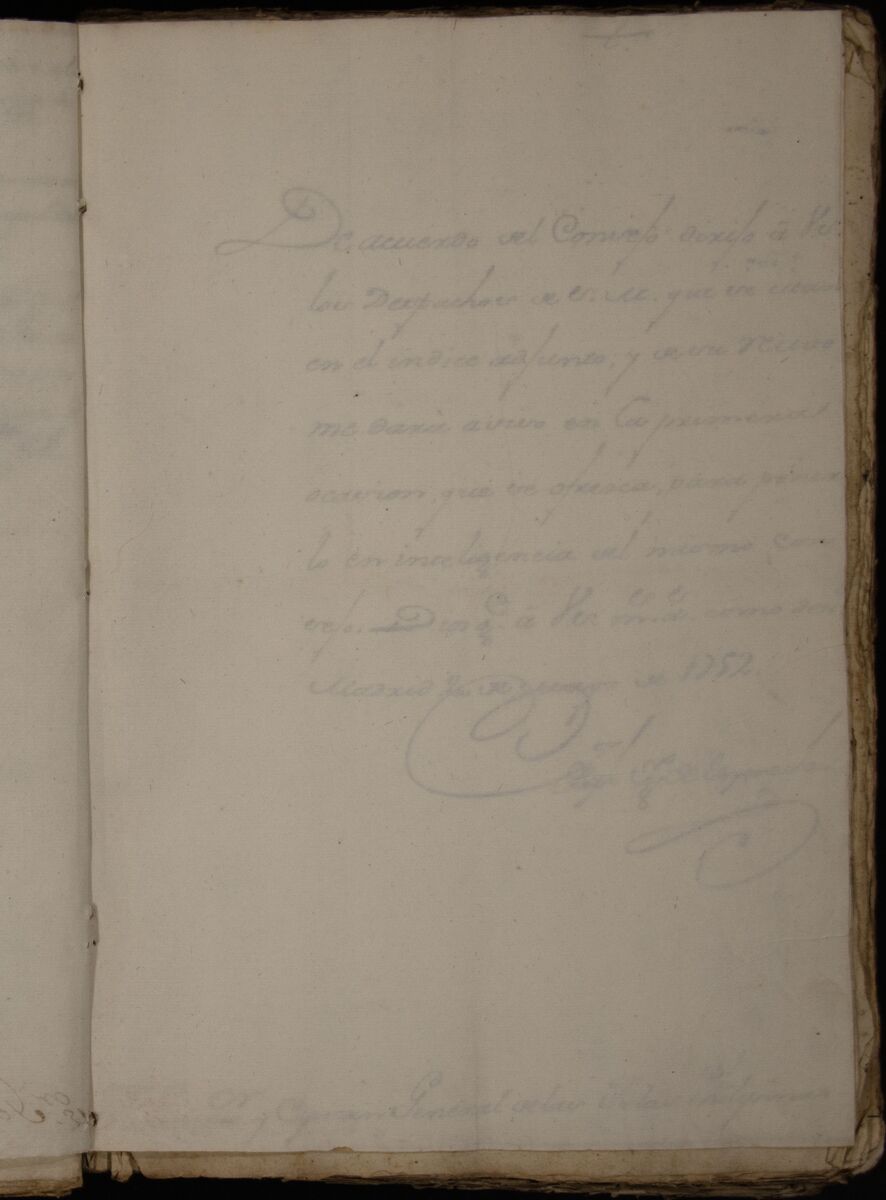 De acuerdo del Consejo dirijo à Vs.
los Despachos de S. M. que se citan
en el indice adjunto, y de su recivo
me darà aviso en la primera
ocasion, que se ofresca, para poner
lo en inteligencia del mismo Con
sejo. Dios g.e à Vs. m.s a.s como
Madrid de 1752.
y Capitan General de las Islas Philipinas